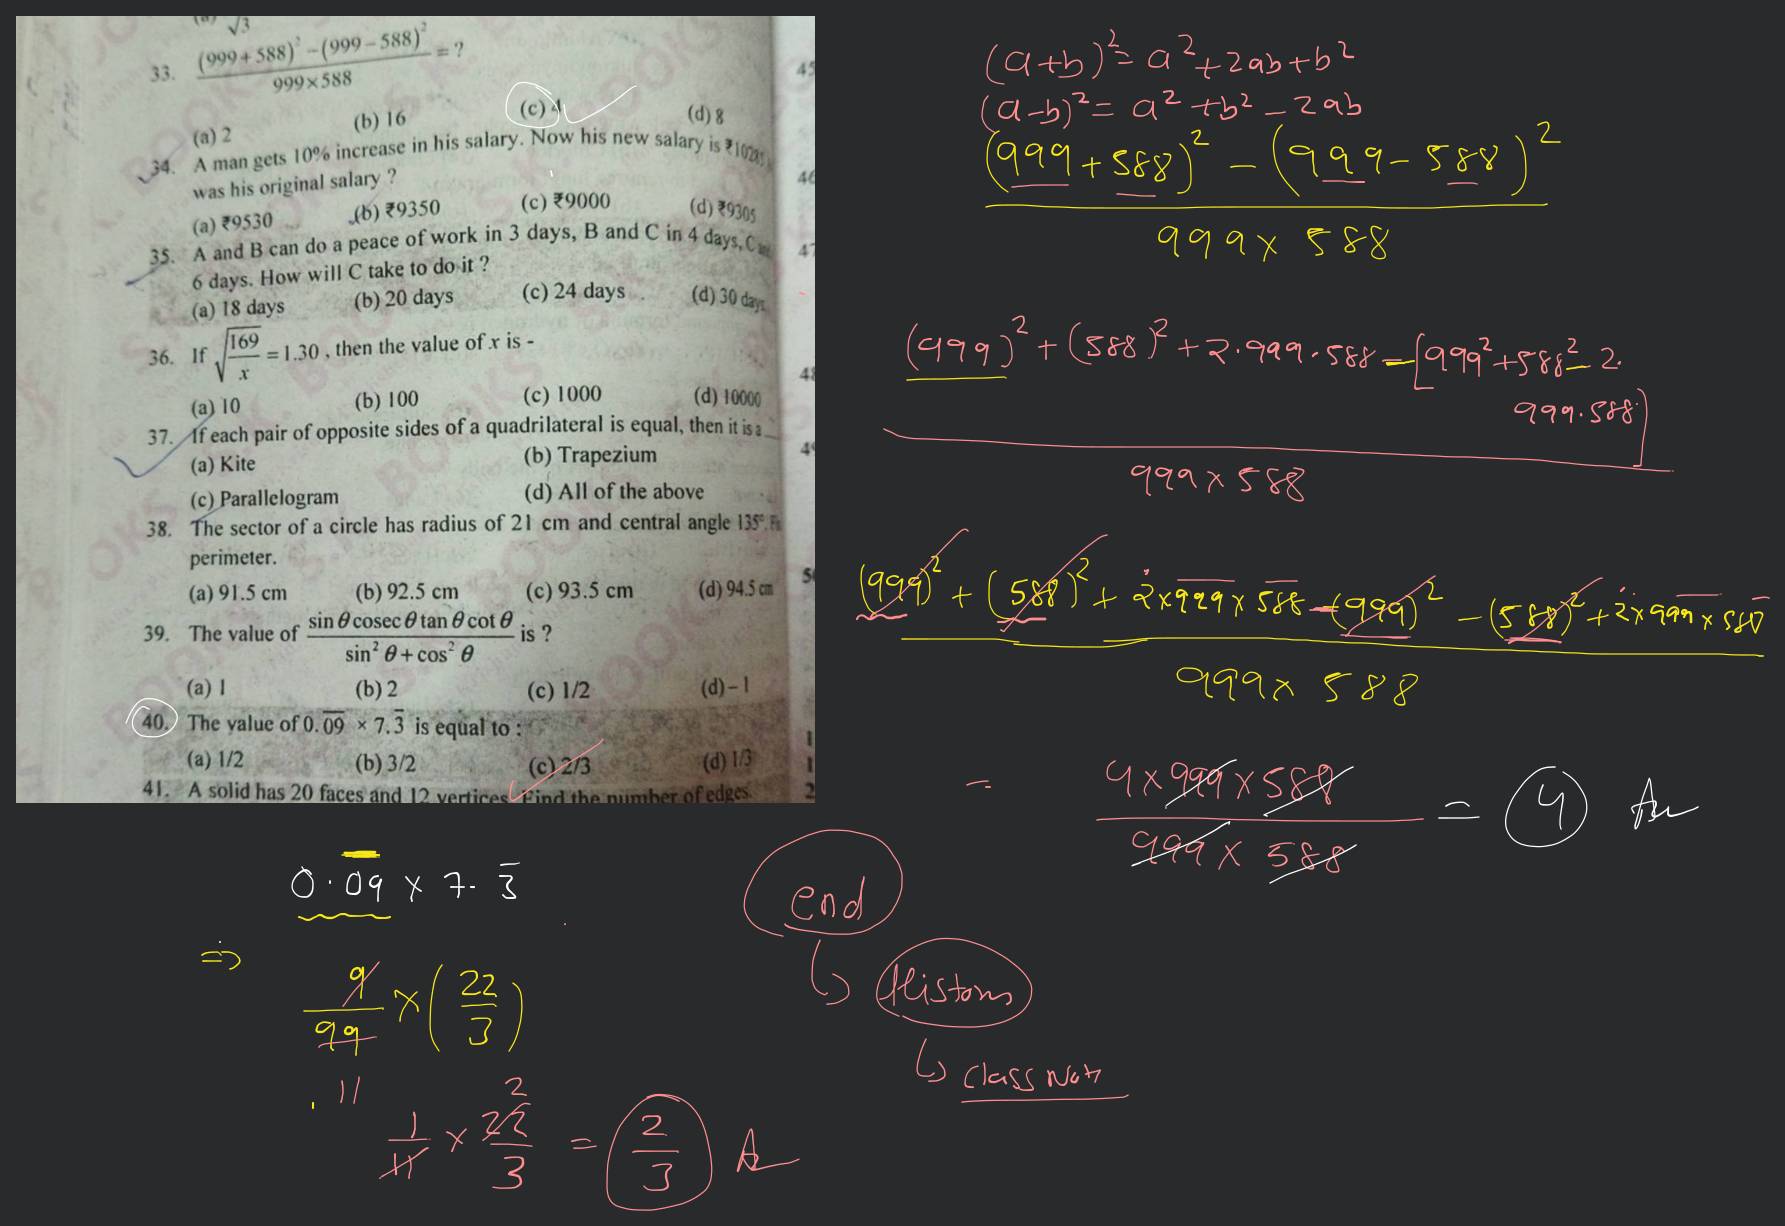 33. (999+588)² − (999−588)² / 999×588 = ?
(a) 2 (b) 16 (c) 4 (d) 8
34. A man gets 10% increase in his salary. Now his new salary is
was his original salary ?
(a) ₹9530 (b) ₹9350 (c) ₹9000 (d) ₹9305
35. A and B can do a peace of work in 3 days, B and C in 4 days, C
6 days. How will C take to do it ?
(a) 18 days (b) 20 days (c) 24 days (d) 30 days
36. If √(169/x) = 1.30 , then the value of x is -
(a) 10 (b) 100 (c) 1000 (d) 10000
37. If each pair of opposite sides of a quadrilateral is equal, then it is a
(a) Kite (b) Trapezium
(c) Parallelogram (d) All of the above
38. The sector of a circle has radius of 21 cm and central angle 135°.
perimeter.
(a) 91.5 cm (b) 92.5 cm (c) 93.5 cm (d) 94.5 cm
39. The value of sin θ cosec θ tan θ cot θ / sin² θ + cos² θ is ?
(a) 1 (b) 2 (c) 1/2 (d) – 1
40. The value of 0.0̅9̅ × 7.3̅ is equal to :
(a) 1/2 (b) 3/2 (c) 2/3 (d) 1/3
41. A solid has 20 faces and 12 vertices. Find the number of edges.
(a+b)² = a²+2ab+b²
(a-b)² = a²+b²-2ab
(999+588)² − (999−588)²
999 × 588
(999)² + (588)² + 2·999·588 − [999²+588²−2·
999·588]
999 × 588
(999)² + (588)² + 2×999×588 − (999)² − (588)² + 2×999×588
999 × 588
= 4×999×588 / 999×588 = 4
0.0̅9̅ × 7.3̅
⇒ 9/99 × (22/3)
11
2
1/11 × 22/3 = 2/3
end